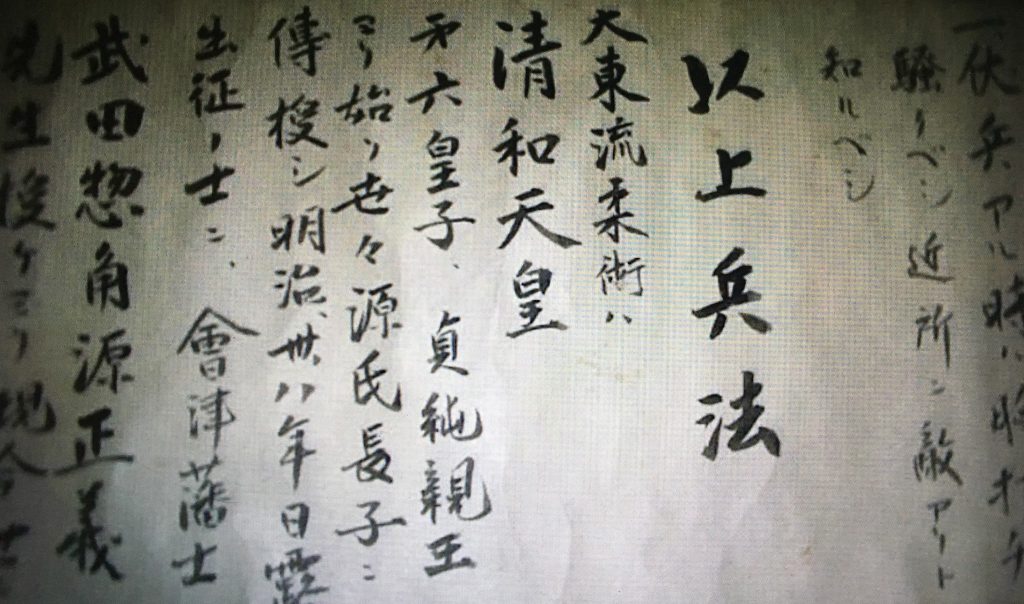 一伏兵アル時ハ
騒クベシ近所ニ敵アリト
知ルベシ
以上兵法
大東流柔術ハ
清和天皇
第六皇子、貞純親王
ヨリ始リ世々源氏長子ニ
傳授シ明治、卅八年日露
出征ノ士ニ、會津藩士
武田惣角源正義
先生授ケ